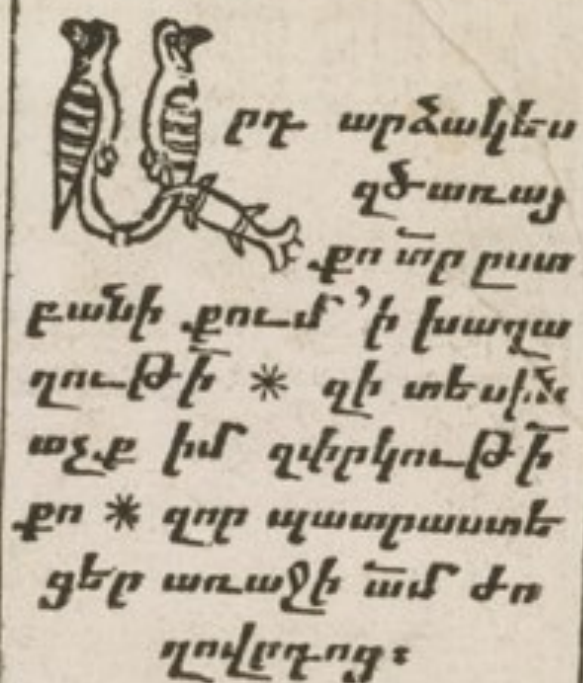 Արդ արձակես
զծառայ
քո տր ըստ
բանի քում՝ ի խաղա
ղութի * զի տեսին
աչք իմ զփրկութի
քո * զոր պատրաստե
ցեր առաջի ամ ժո
ղովրդոց։